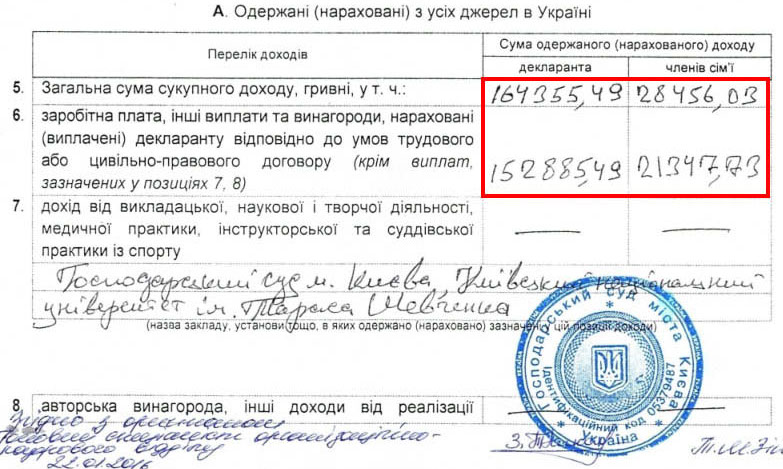 А. Одержані (нараховані) з усіх джерел в Україні
Перелік доходів
Сума одержаного (нарахованого) доходу
декларанта членів сім'ї
5. Загальна сума сукупного доходу, гривні, у т. ч.: 164355,49 28456,03
6. заробітна плата, інші виплати та винагороди, нараховані
(виплачені) декларанту відповідно до умов трудового
або цивільно-правового договору (крім виплат,
зазначених у позиціях 7, 8) 152885,49 21347,73
7. дохід від викладацької, наукової і творчої діяльності,
медичної практики, інструкторської та суддівської
практики із спорту
Господарський суд м. Києва, Київський національний
університет ім. Тараса Шевченка
(назва закладу, установи тощо, в яких одержано (нараховано) зазначений у цій позиції доходи)
Господарський суд міста Києва
Ідентифікаційний код 05379487
Україна
8 авторська винагорода, інші доходи від реалізації
Згідно з оригіналом
Головний спеціаліст організаційно-
кадрового відділу
22.01.2016